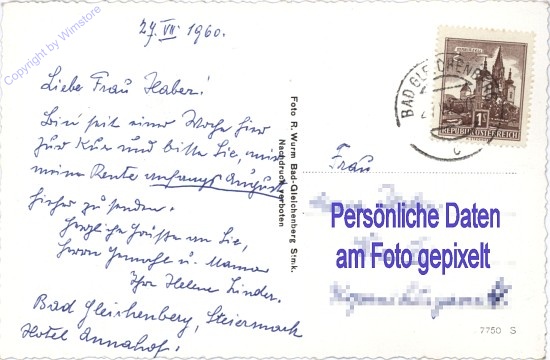 Copyright by Wimstore
27. VII. 1960.
Liebe Frau Haber!
Bin seit einer Woche hier
zur Kur und bitte Sie, mir
meine Rente anfangs August
hieher zu senden.
Herzliche Grüße an Sie,
Herrn Gemahl u. Mama
Ihre Helene Linder.
Bad Gleichenberg, Steiermark
Hotel Annahof.
Foto R. Wurm Bad-Gleichenberg Stmk.
Nachdruck verboten
BAD GLEICHENBERG
REPUBLIK ÖSTERREICH
Frau
Persönliche Daten
am Foto gepixelt
7750 S